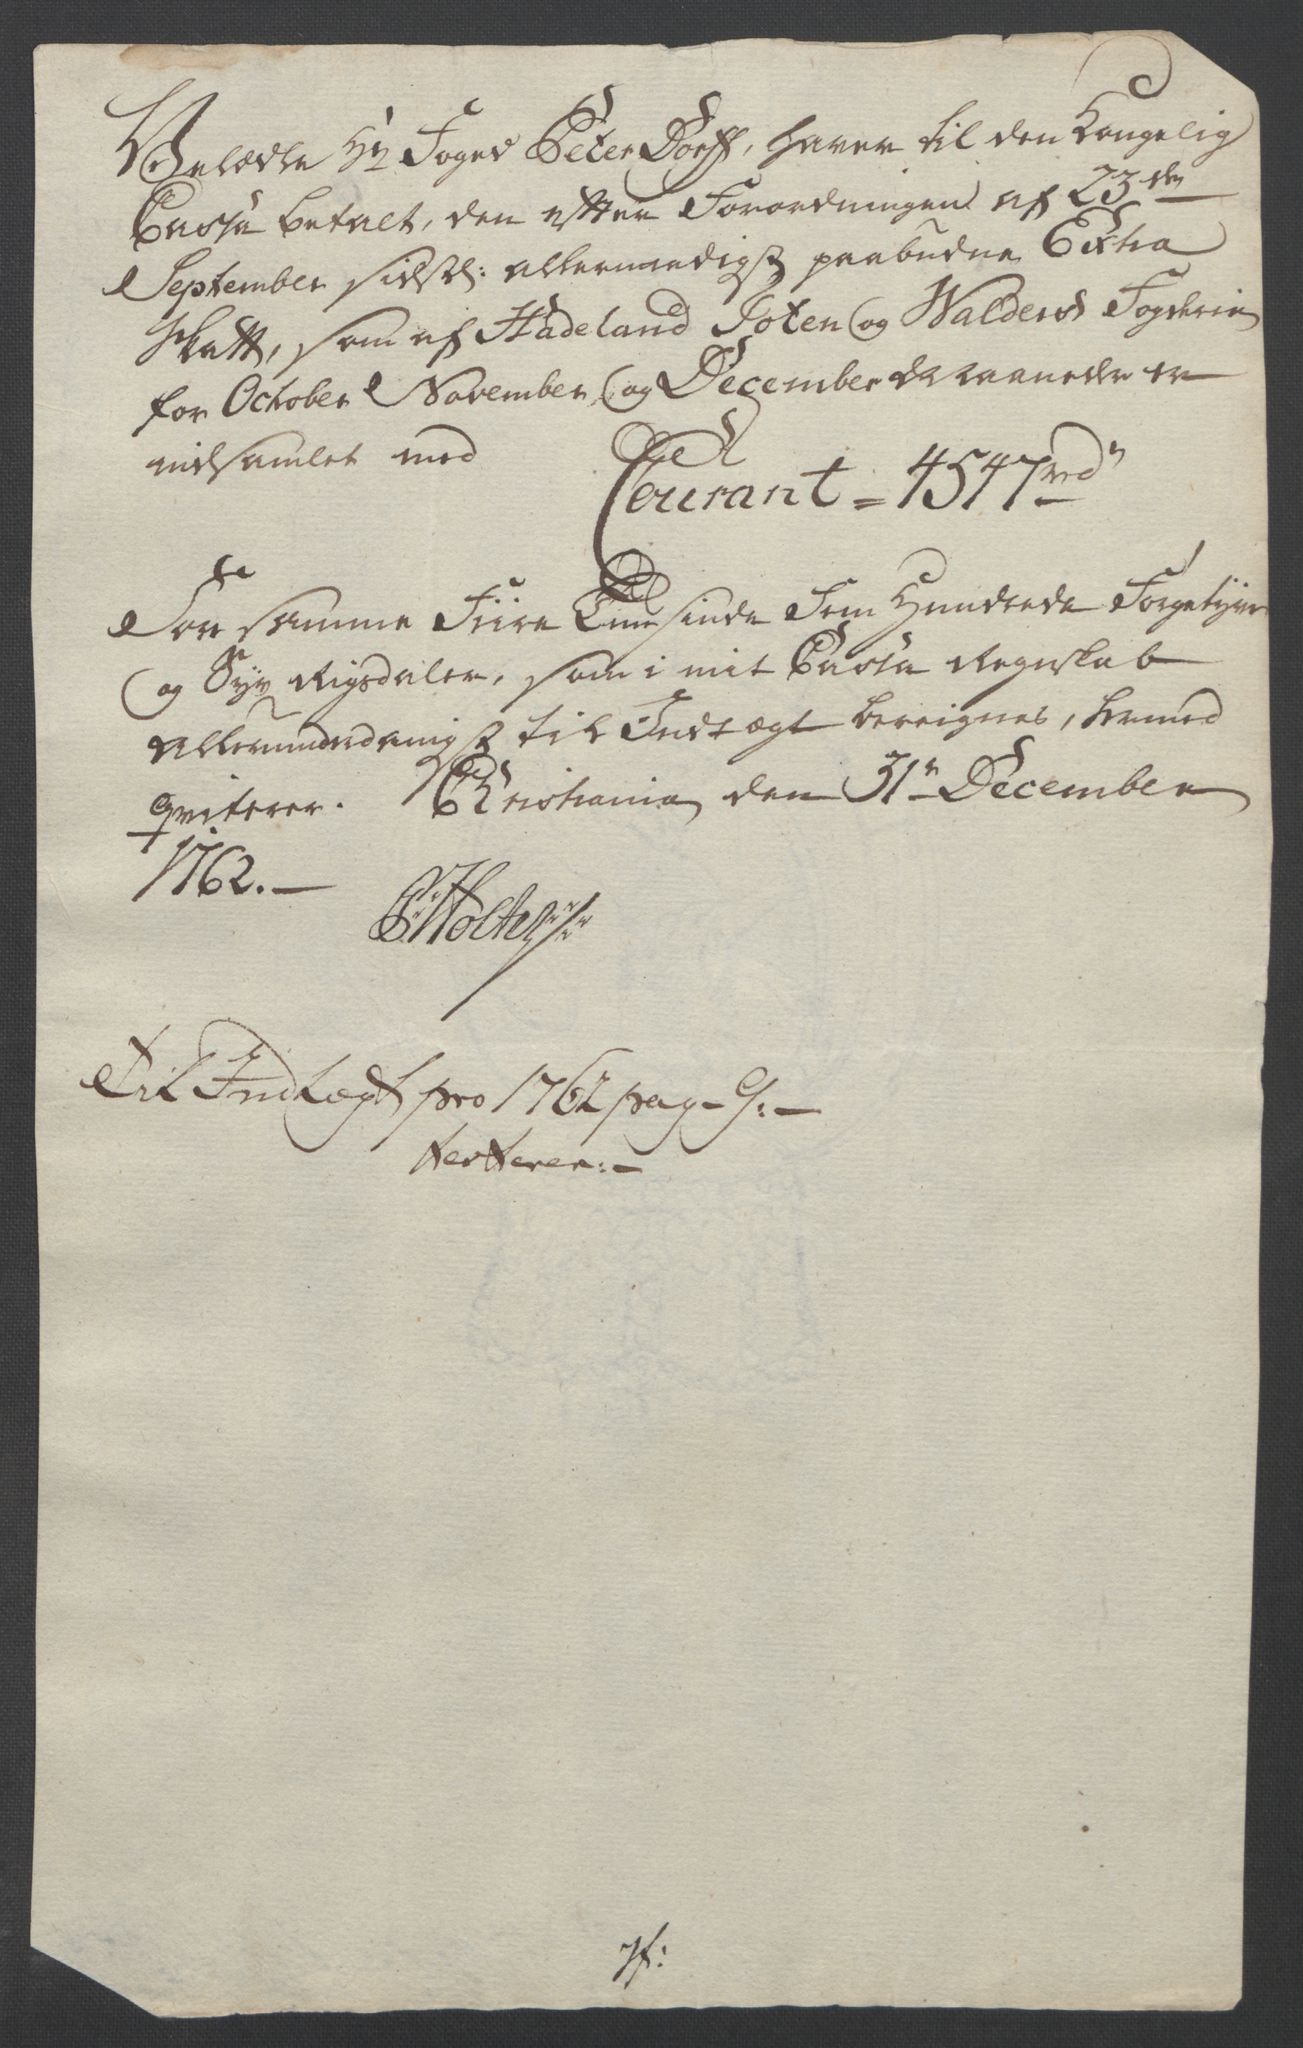 Velædle Hr Foged Peter Dorff, haver til den Kongelig
Cassa betalt, den efter Forordningen af 23de
September sidstl: allernaadigst paabudne Extra
Skatt, som af Hadeland Toten og Walders Fogderie
for October November og December Maaneder er
indsamlet med
Courant = 4547 rd
For samme Fiire Tusinde Fem Hundrede Forgetyve
og Syv Rigsdaler, som i mit Cassa Regnskab
allerunderdanigst til Indtægt beregnes, hermed
qviterer. Christiania den 31n December
1762.
Holter
Til Indtægt pro 1762 pag
testerer: